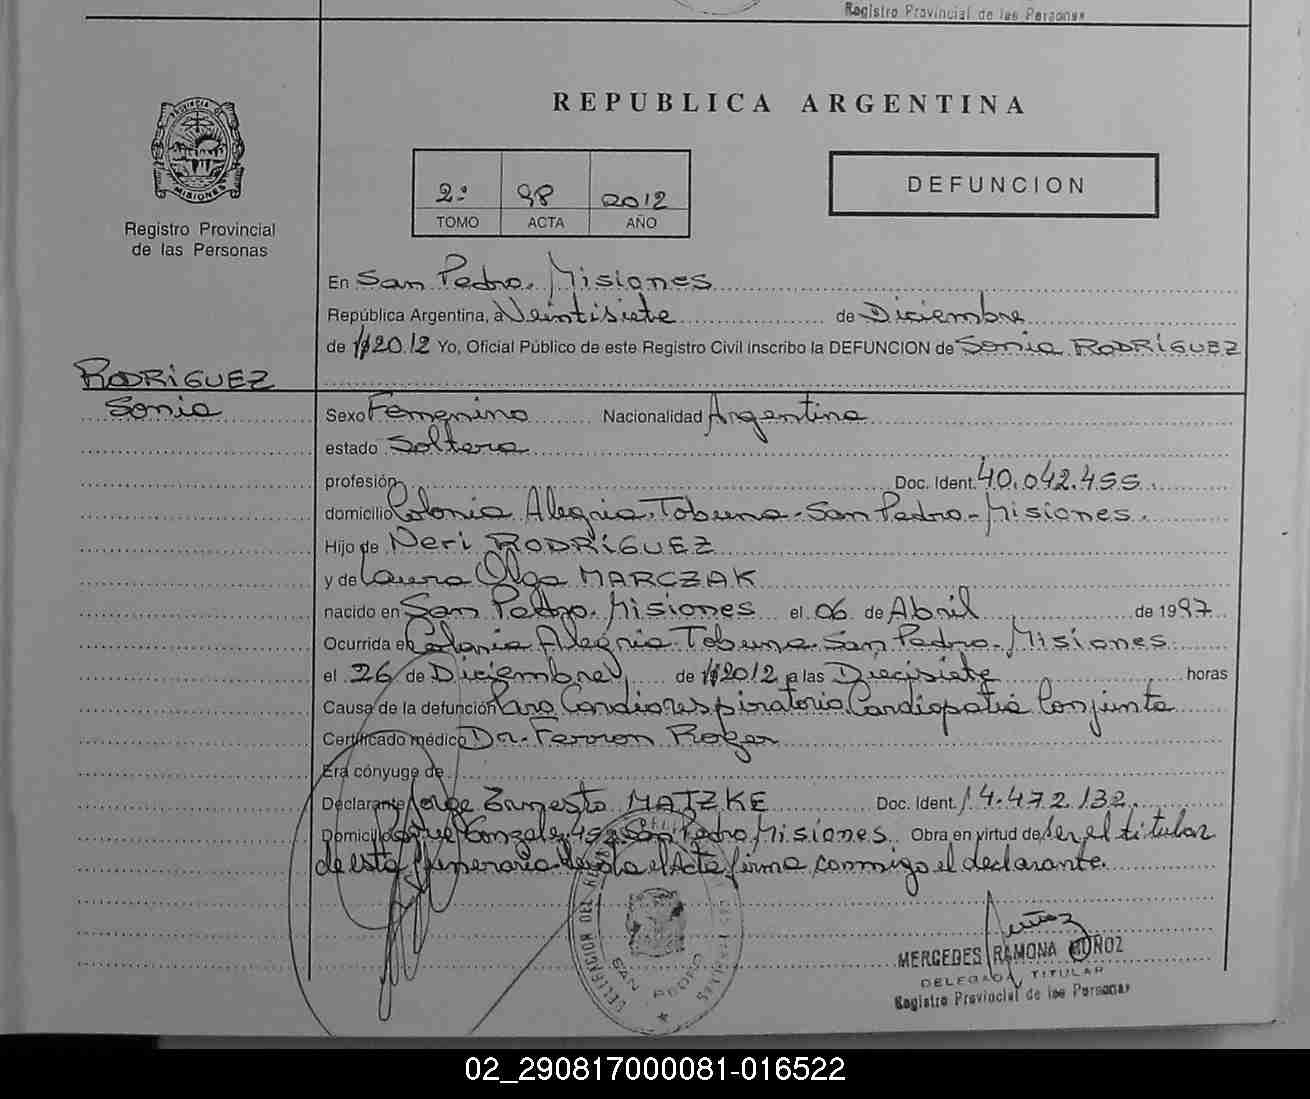 Registro Provincial de las Personas
REPUBLICA ARGENTINA
2º 98 2012
TOMO ACTA AÑO
DEFUNCION
PROVINCIA DE
MISIONES
Registro Provincial
de las Personas
En San Pedro. Misiones
República Argentina, a Veintisiete de Diciembre
de 2012 Yo, Oficial Público de este Registro Civil inscribo la DEFUNCION de Sonia RODRÍGUEZ
RODRÍGUEZ
Sonia
Sexo Femenino Nacionalidad Argentina
estado Soltera
profesión Doc. Ident. 40.042.455.
domicilio Colonia Alegria. Tobuna. San Pedro - Misiones.
Hijo de Neri RODRÍGUEZ
y de Laura Olga MARCZAK
nacido en San Pedro. Misiones el 06 de Abril de 1997
Ocurrida en Colonia Alegria. Tobuna. San Pedro. Misiones
el 26 de Diciembre de 2012 a las Diecisiete horas
Causa de la defunción Paro Cardiorespiratorio Cardiopatia Conjunta
Certificado médico Dr. Ferron Roger
Era cónyuge de
Declarante Jorge Ernesto MATZKE Doc. Ident. 14.472.132.
Domicilio Gonzalez 452 San Pedro. Misiones. Obra en virtud de ser el titular
de esta funeraria. Leída el Acta firma conmigo el declarante.
DELEGACION DEL
SAN PEDRO
Muñoz
MERCEDES RAMONA MUÑOZ
DELEGADA TITULAR
Registro Provincial de las Personas
02_290817000081-016522